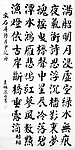 滿船明月浸虛空綠水無痕
夜氣沖詩思浮沉檣影裏夢
魂搖曳櫓聲中星辰冷落碧
潭水鴻雁悲鳴紅蓼風數點
漁燈依古岸斷橋垂露滴梧桐